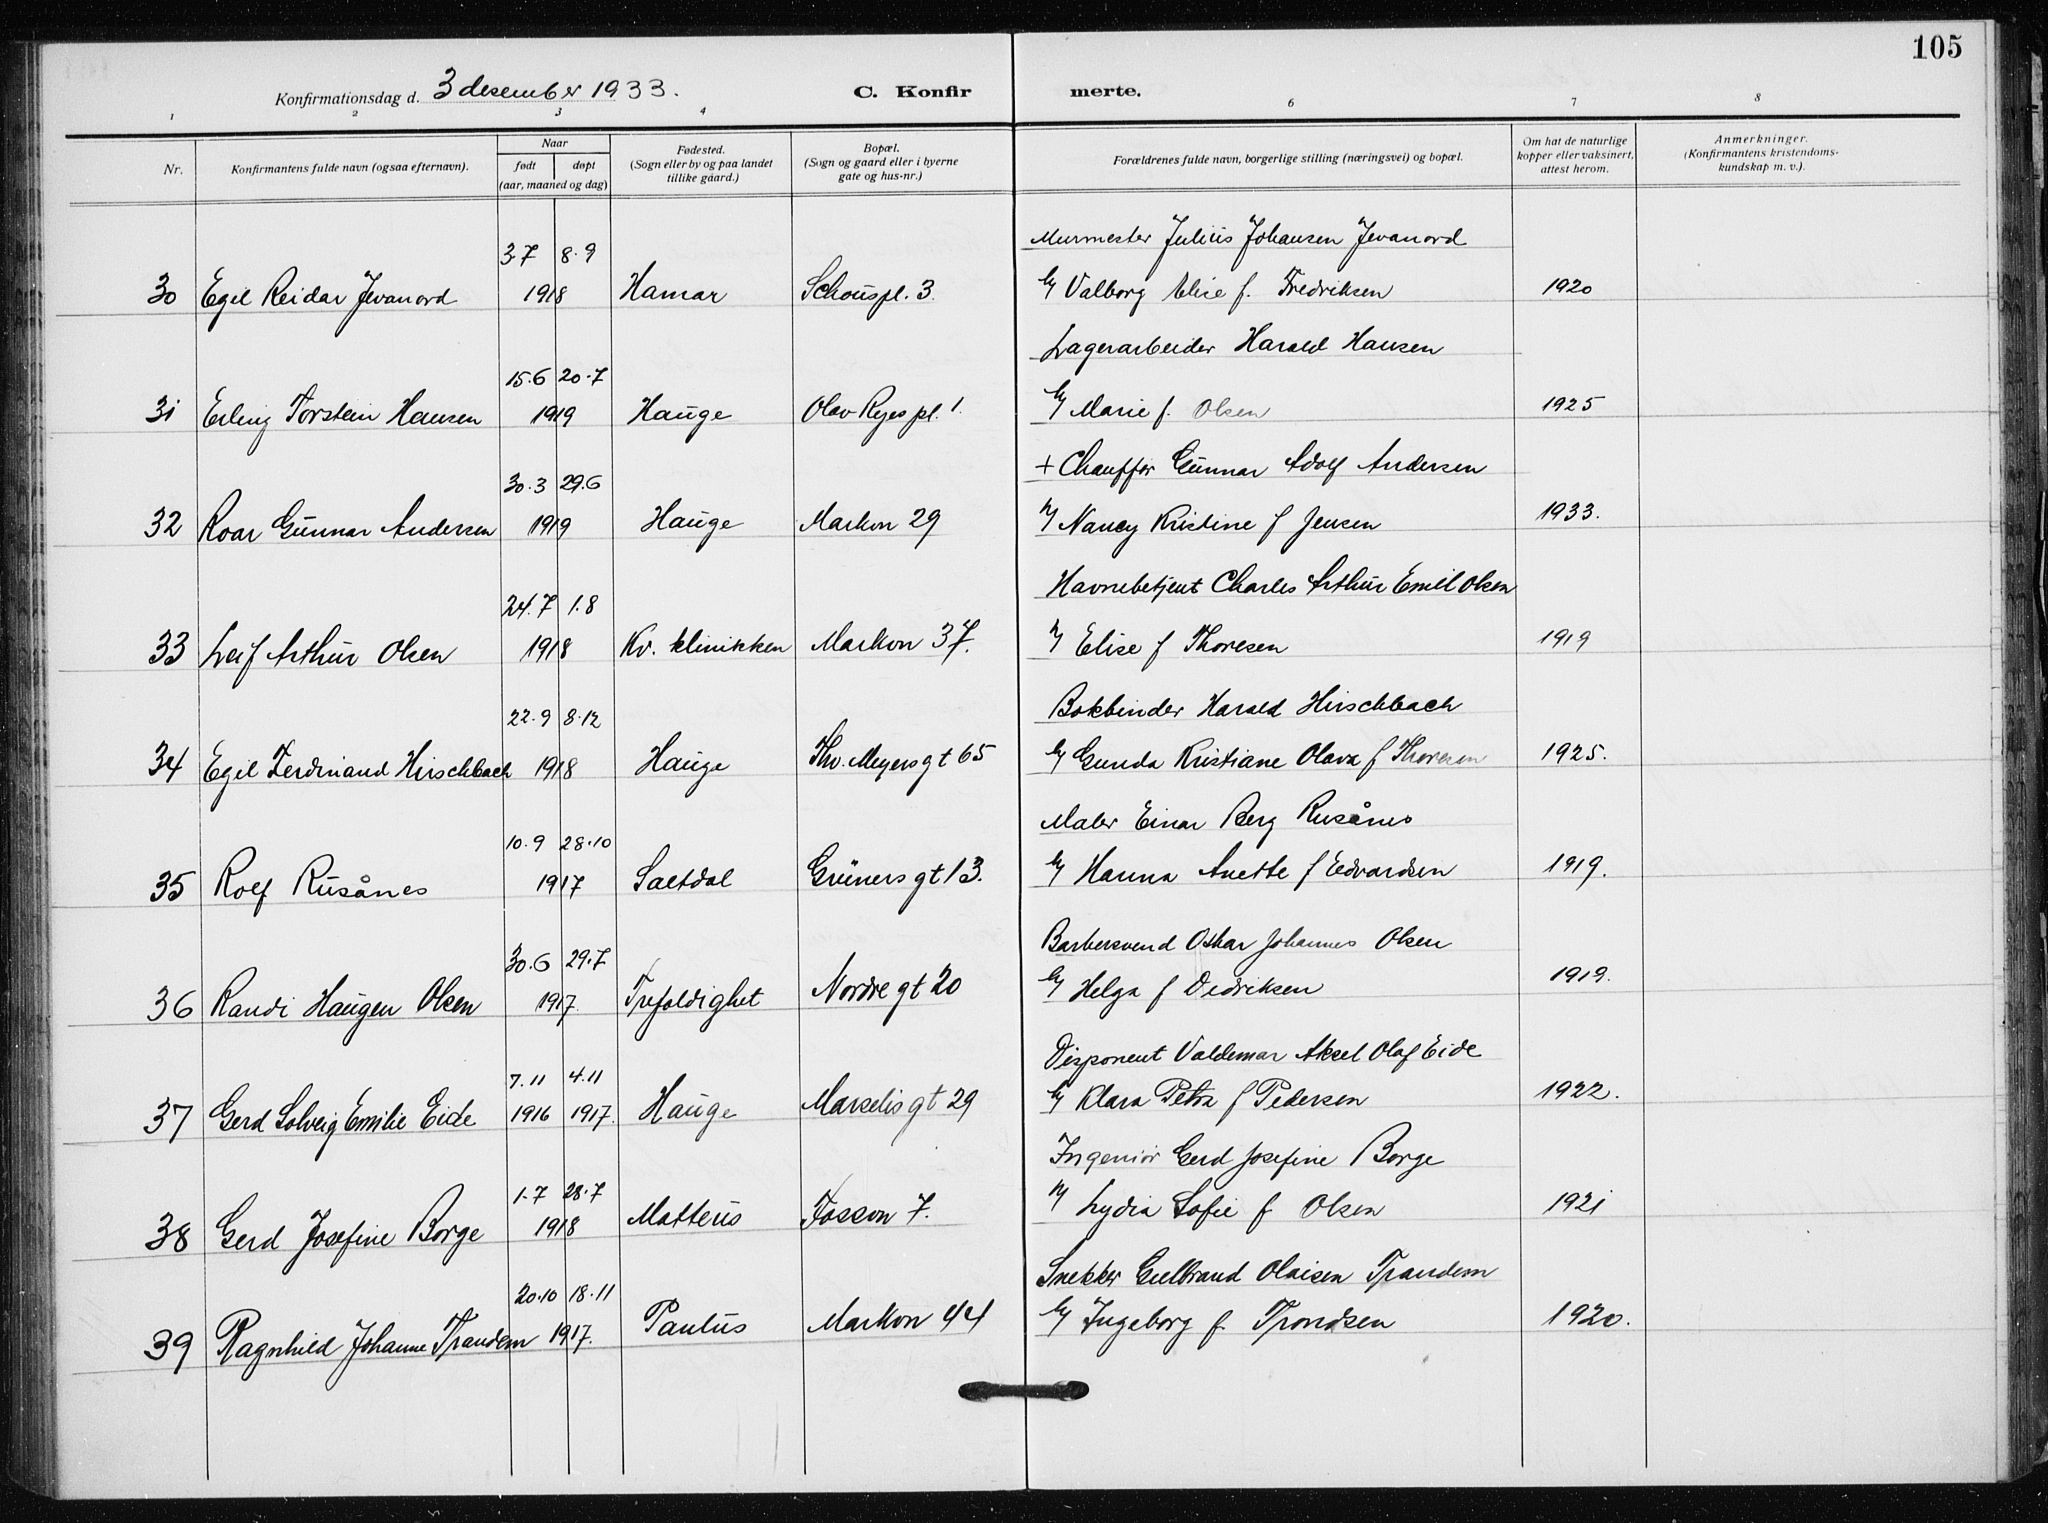 105
Konfirmationsdag d. 3 desember 1933.
C. Konfirmerte.
1 2 3 4 6 7 8
Nr.
Konfirmantens fulde navn (ogsaa efternavn).
Naar
født døpt
(aar, maaned og dag)
Fødested.
(Sogn eller by og paa landet
tillike gaard.)
Bopæl.
(Sogn og gaard eller i byerne
gate og hus-nr.)
Forældrenes fulde navn, borgerlige stilling (næringsvei) og bopæl.
Om hat de naturlige
kopper eller vaksinert,
attest herom.
Anmerkninger.
(Konfirmantens kristendoms-
kundskap m. v.).
3.7 8.9 Murmester Julius Johansen Jevanord
30 Egil Reidar Jevanord 1918 Hamar Schouspl. 3. Valborg Elise f. Fredriksen 1920
15.6 20.7 Lagerarbeider Harald Hansen
31 Erling Torstein Hansen 1919 Hauge Olav Ryes pl. 1. Marie f. Olsen 1925
30.3 29.6 + Chauffør Gunnar Adolf Andersen
32 Roar Gunnar Andersen 1919 Hauge Markvn 29 Nancy Kristine f Jensen 1933.
24.7 1.8 Havnebetjent Charles Arthur Emil Olsen
33 Leif Arthur Olsen 1918 Kv. klinikken Markvn 37. Elise f Thoresen 1919
22.9 8.12 Bokbinder Harald Hirschbach
34 Egil Ferdinand Hirschbach 1918 Hauge Thv. Meyersgt 65 Gunda Kristiane Olava f Thoresen 1925.
10.9 28.10 Maler Einar Berg Rusånes
35 Rolf Rusånes 1917 Saltdal Grünersgt 13. Hanna Anette f Edvardsen 1919.
30.6 29.7 Barbersvend Oskar Johannes Olsen
36 Randi Haugen Olsen 1917. Trefoldighet Nordregt 20 Helga f Dedriksen 1919.
7.11 4.11 Disponent Valdemar Aksel Olaf Eide
37 Gerd Solveig Emilie Eide 1916 1917. Hauge Marselisgt 29 Klara Petra f Pedersen 1922.
1.7 28.7 Ingeniør Gerd Josefine Borge
38 Gerd Josefine Borge 1918 Matteus Fossvn 7. Lydia Sofie f Olsen 1921
20.10 18.11 Snekker Gulbrand Olaisen Trandem
39 Ragnhild Johanne Trandem 1917. Paulus Markvn 44 Ingeborg f. Trondsen 1920.